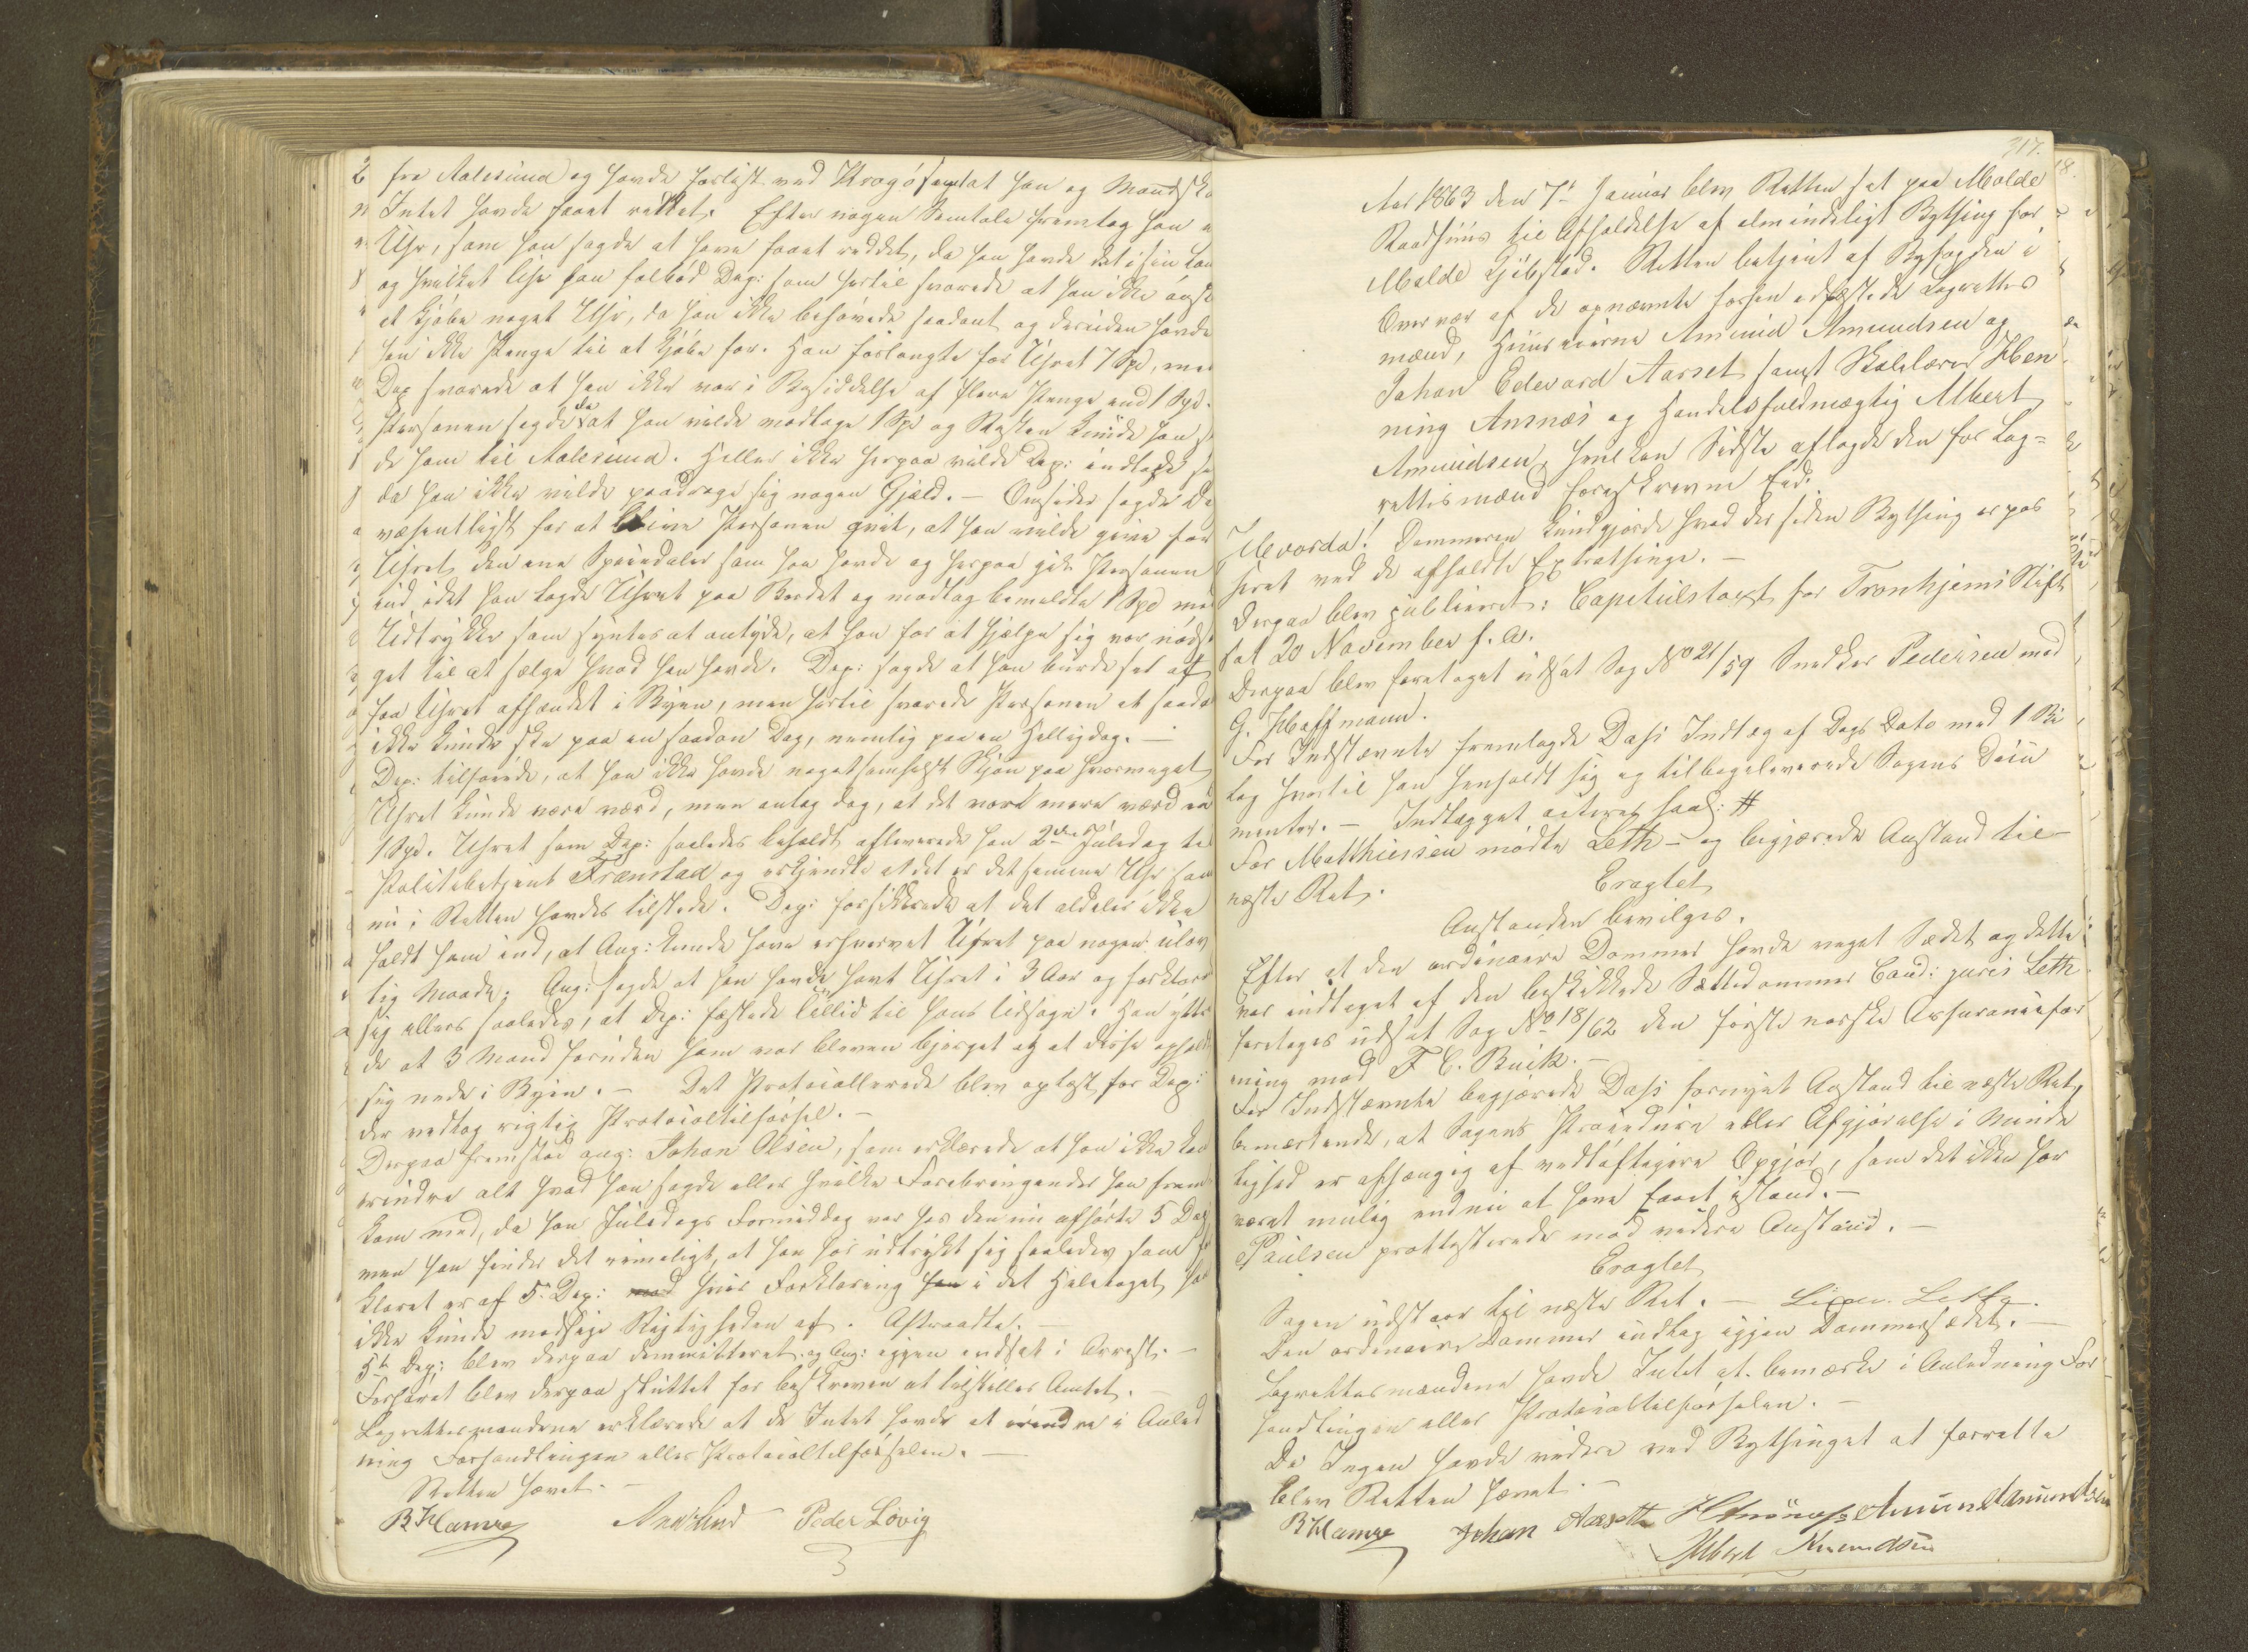 fra Aalesund og havde forlist ved Kragø samt at han og Mandska
Intet havde faaet reddet. Efter nogen Samtale fremtog han e
Uhr, som han sagde at have faaet reddet, da han havde det i sin Lom
og hvilket Uhr han falbød Dep: som hertil svarede at han ikke ønsk
at kjøbe noget Uhr, da han ikke behøvede saadant og desuden havde
han ikke Penge til at kjøbe for. Han forlangte for Uhret 7 Spd, men
Dep svarede at han ikke var i Besiddelse af flere Penge end 1 Spd.
Personen sagde da at han vilde modtage 1 Spd og Resten kunde han s
de ham til Aalesund. Heller ikke herpaa vilde Dep: indlade sig
da han ikke vilde paadrage sig nogen Gjæld. — Omsider sagde De
væsentligst for at blive Personen qvit, at han vilde give for
Uhret den ene Speciedaler som han havde og herpaa gik Personen
ind, idet han lagde Uhret paa Bordet og modtog bemeldte 1 Spd med
Udtrykke som syntes at antyde, at han for at hjælpe sig var nødsa
get til at sælge hvad han havde. Dep: sagde at han burde set at
faa Uhret afhændet i Byen, men hertil svarede Personen at saada
ikke kunde ske paa en saadan Dag, nemlig paa en Helligdag. —
Dep: tilføiede, at han ikke havde nogetsomhelst Skjøn paa hvormeget
Uhret kunde være værd, men antog dog, at det var mere værd end
1 Spd. Uhret som Dep: saaledes beholdt afleverede han 2den Juledag til
Politibetjent Frænstad og erkjendte at det er det samme Uhr som
nu i Retten havdes tilstede. Dep: forsikkrede at det aldeles ikke
faldt ham ind, at Ang: kunde have erhvervet Uhret paa nogen ulov
lig Maade. Ang: sagde at han havde havt Uhret i 3 Aar og forklared
sig ellers saaledes, at Dep: fæstede Lillid til hans Udsagn. Han yttre
de at 3 Mand foruden ham var bleven bjerget og at disse opholdt
sig nede i Byen. — Det Protocollerede blev oplæst for Dep:
der vedtog rigtig Protocoltilførsel. —
Derpaa fremstod ang: Johan Olsen, som erklærede at han ikke kan
erindre alt hvad han sagde eller hvilke Forebringender han frem
kom med, da han Juledags Formiddag var hos den nu afhørte 5 Dep
men han finder det rimeligt, at han har udtrykt sig saaledes som for
klaret er af 5. Dep: mod hvis Forklaring han i det Heletaget hel
ikke kunde modsige Rigtigheden af. Aftraadte. —
5te Dep: blev derpaa demmitteret. og Ang: igjen indsat i Arrest. —
Forhøret blev derpaa sluttet for beskreven at tilstilles Amtet. —
Lagrettesmændene erklærede at de Intet havde at erindre i Anled
ning Forhandlingen eller Protocoltilførselen. —
Retten hævet. —
B Hamre Peder Løvig
317.
Aar 1863 den 7de Januar blev Retten sat paa Molde
Raadhuus til Afholdelse af almindeligt Bything for
Molde Kjøbstad. Retten betjent af Byfogden i
Overvær af de opnævnte forhen edfæstede Lagrettes
mænd, Huuseierne Amund Amundsen og
Johan Edevard Aarset samt Skolelærer Hen
ning Amnæs og Handelsfuldmægtig Albert
Amundsen, hvilken Sidste aflagde den for Lag=
rettesmænd foreskrevne Eed.
Hvorda! Dommeren kundgjorde hvad der siden Bything er pas
seret ved de afholdte Extrathinge. —
Derpaa blev publiceret: Capitulstaxt for Tronhjems Stift
sat 20 November f. A.
Derpaa blev foretaget udsat Sag No 21/59 Snedker Pedersen mod
G. Hoffmann.
For Indstævnte fremlagde Dahl Indlæg af Dags Dato med 1 Bi
lag hvortil han henholdt sig og tilbageleverede Sagens Docu
menter. — Indlægget acteres saal: #
For Matthiessen mødte Leth — og begjærede Anstand til
næste Ret.
Eragtet
Anstanden bevilges.
Efter at den ordinaire Dommer havde veget Sædet og dette
var indtaget af den beskikkede Sættedommer Cand: juris Leth
foretages udsat Sag No 18/62 den første norske Assuranceefor
ening mod F. C. Buck. —
For Indstævnte begjærede Dahl fornyet Anstand til næste Ret,
bemærkende, at Sagens Procedure eller Afgjørelse i Minde
lighed er afhængig af vedløftigere Opgjør, som det ikke har
været mulig endnu at have faaet istand. —
Paulsen protesterede mod videre Anstand. —
Eragtet
Sagen udstaar til næste Ret. —
Den ordinaire Dommer indtog igjen Dommersædet. —
Lagrettesmændene havde Intet at bemærke i Anledning For
handlingen eller Protocoltilførselen. —
Da Ingen havde videre ved Bythinget at forrette
blev Retten hævet. —
B Hamre Johan Aarseth Amund Amundsen
Albert Amundsen